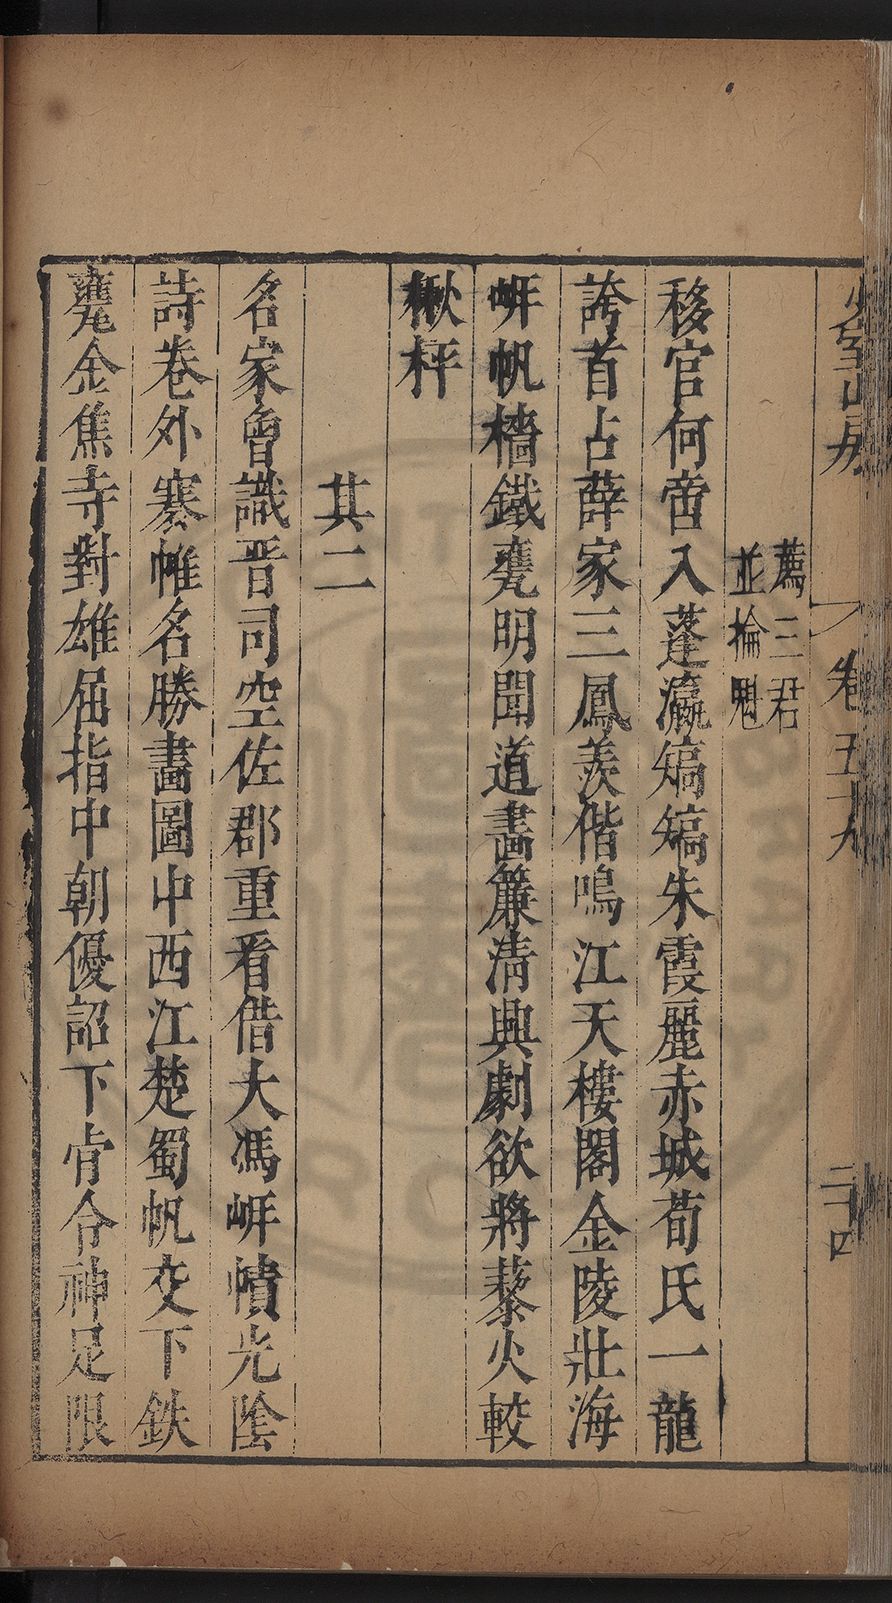 少室山房 卷五十九 二十四
薦三君
並掄魁
移官何啻入蓬瀛熇熇朱霞麗赤城荀氏一龍
誇首占薛家三鳳羨偕鳴江天樓閣金陵壯海
㟁帆檣鐵甕明聞道畵簾淸興劇欲將藜火較
楸枰
其二
名家曾識晉司空佐郡重看借大馮㟁幘光陰
詩卷外褰帷名勝畵圖中西江楚蜀帆交下鉄
甕金焦寺對雄屈指中朝優詔下肯令神足限